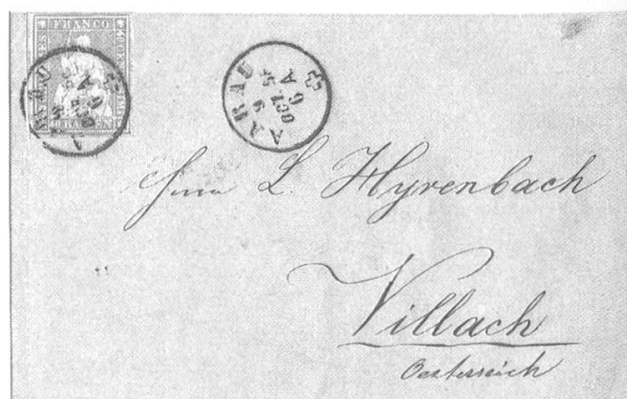 FRANCO
RAPPEN
AARAU
9
OCT
6 A
Herrn L. Hyrenbach
Villach
Oesterreich